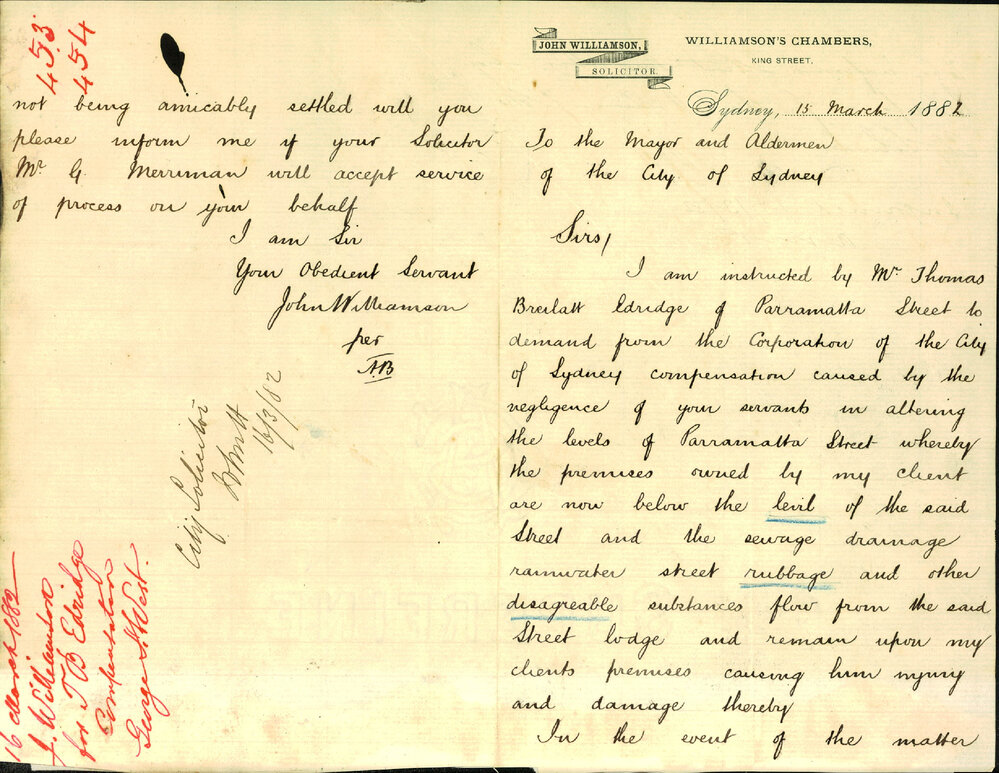 JOHN WILLIAMSON,
SOLICITOR.
WILLIAMSON'S CHAMBERS,
KING STREET.
Sydney, 15 March 1882
To the Mayor and Aldermen
of the City of Sydney
Sirs,
I am instructed by Mr Thomas
Breilatt Edridge of Parramatta Street to
demand from the Corporation of the City
of Sydney compensation caused by the
negligence of your servants in altering
the levels of Parramatta Street whereby
the premises owned by my client
are now below the levil of the said
Street and the sewage drainage
rainwater street rubbage and other
disagreable substances flow from the said
Street lodge and remain upon my
clients premises causing him injury
and damage thereby
In the event of the matter
not being amicably settled will you
please inform me if your Solicitor
Mr G. Merriman will accept service
of process on your behalf
I am Sir
Your Obedient Servant
John Williamson
per
AB
City Solicitor
16/3/82
453
454
16 March 1882
J. Williamson
for T B Edridge
Compensation
George St West.